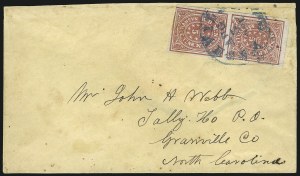 Mr John H Webb
Tally-Ho P.O.
Granville Co
North Carolina